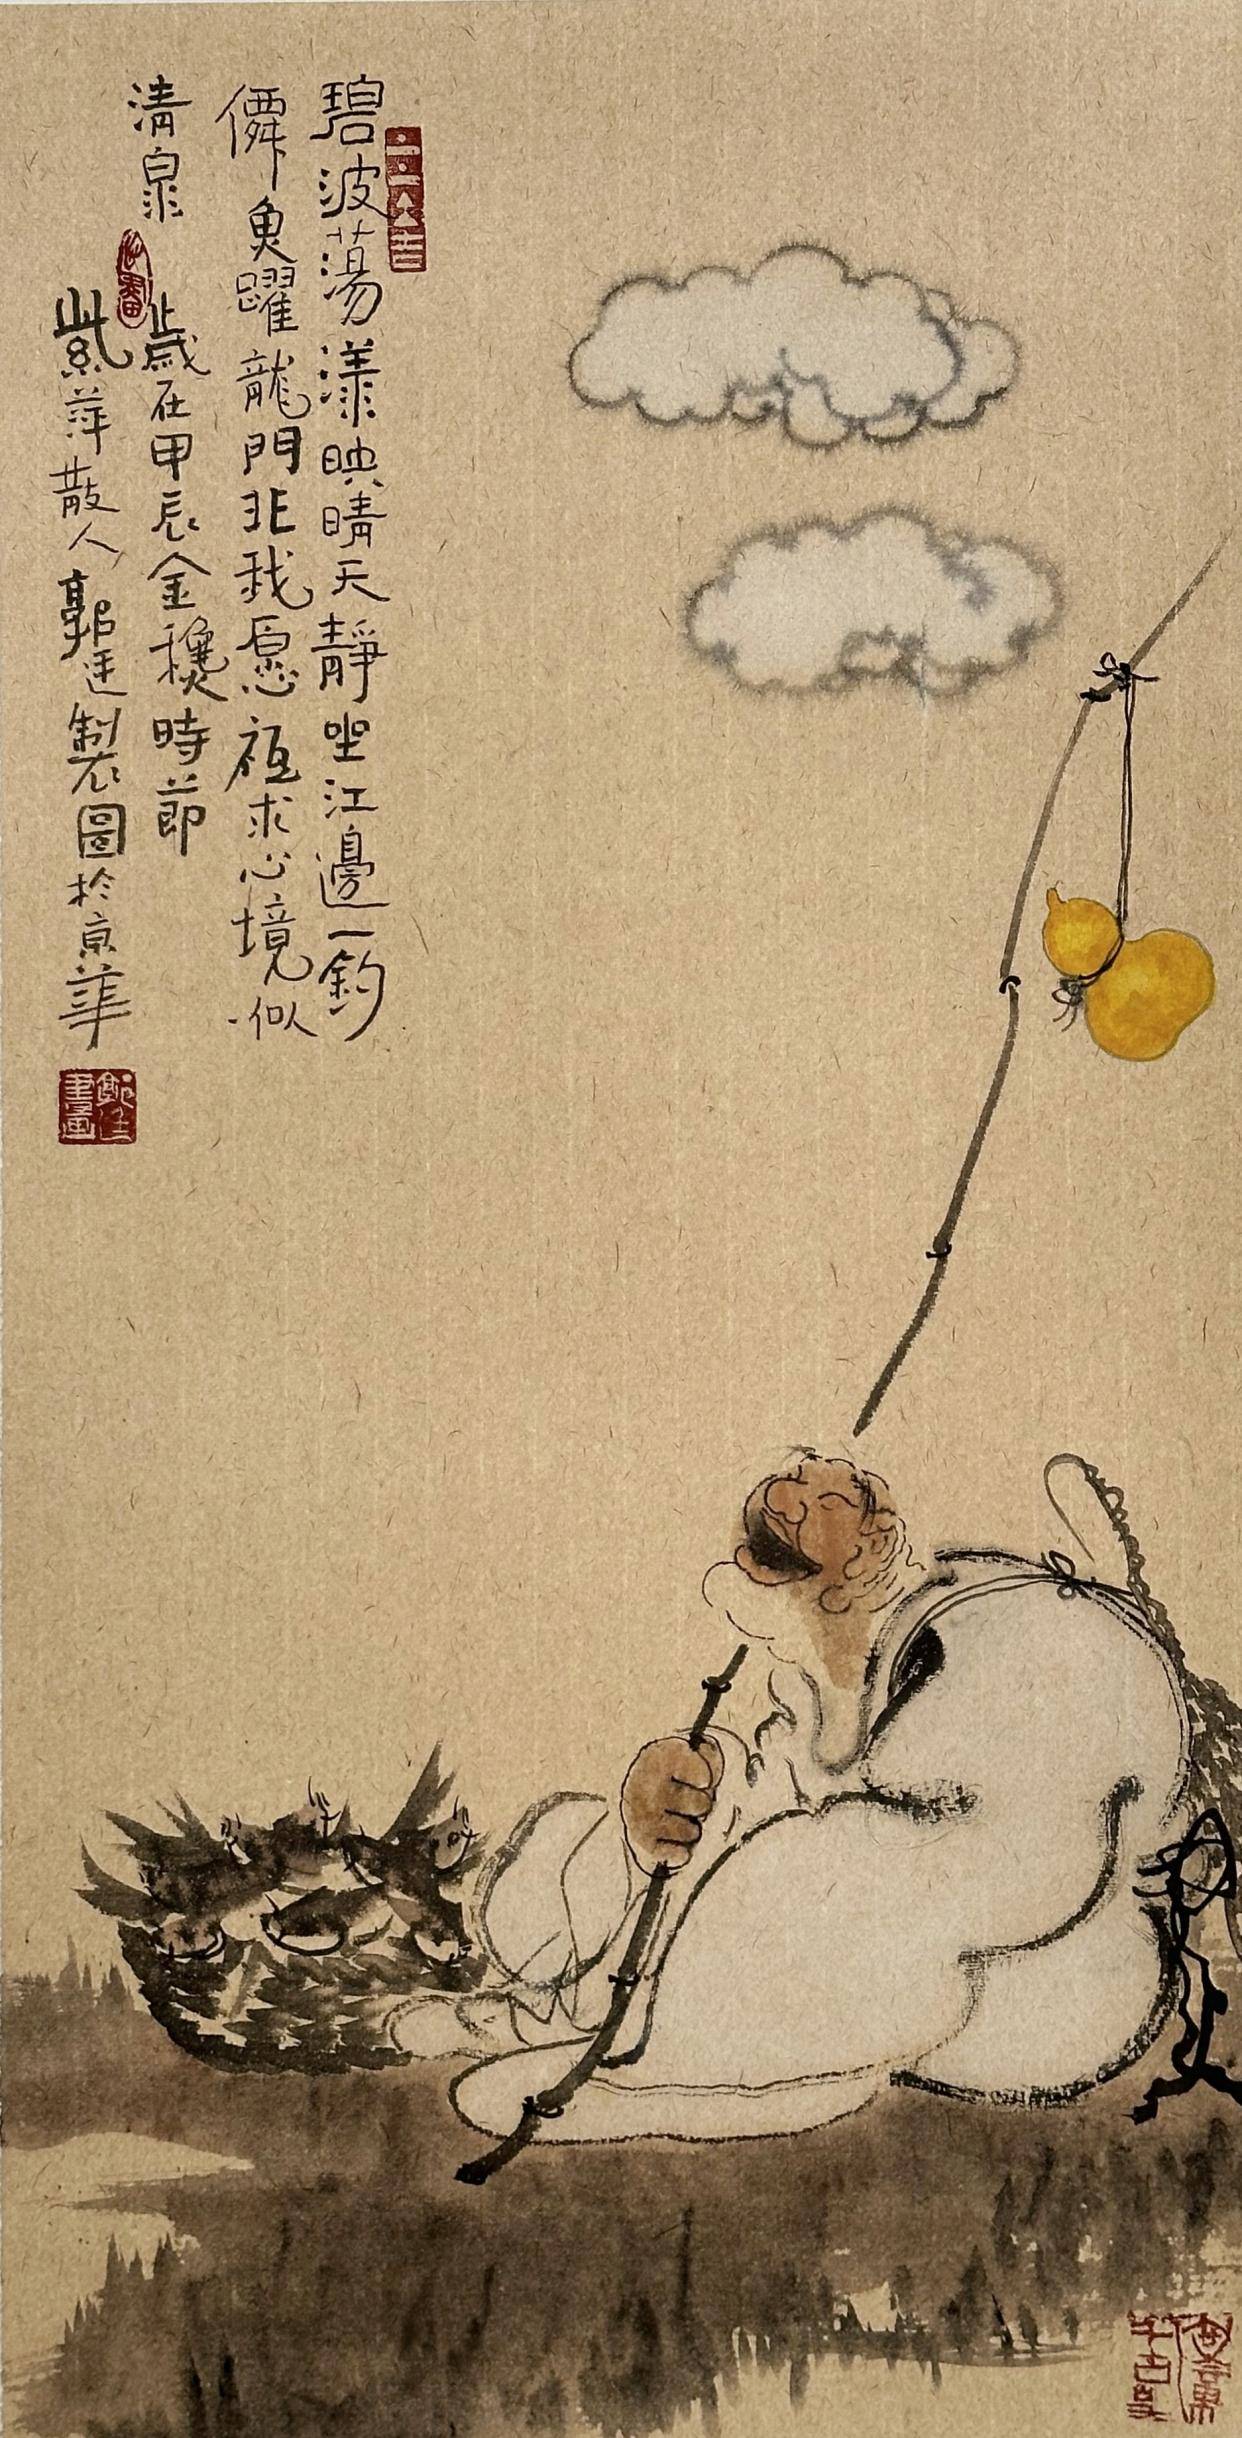 碧波蕩漾映晴天靜坐江邊一釣
僊魚躍龍門非我愿祗求心境似
清泉
歲在甲辰金穫時節
紫萍散人郭廷製圖於京華